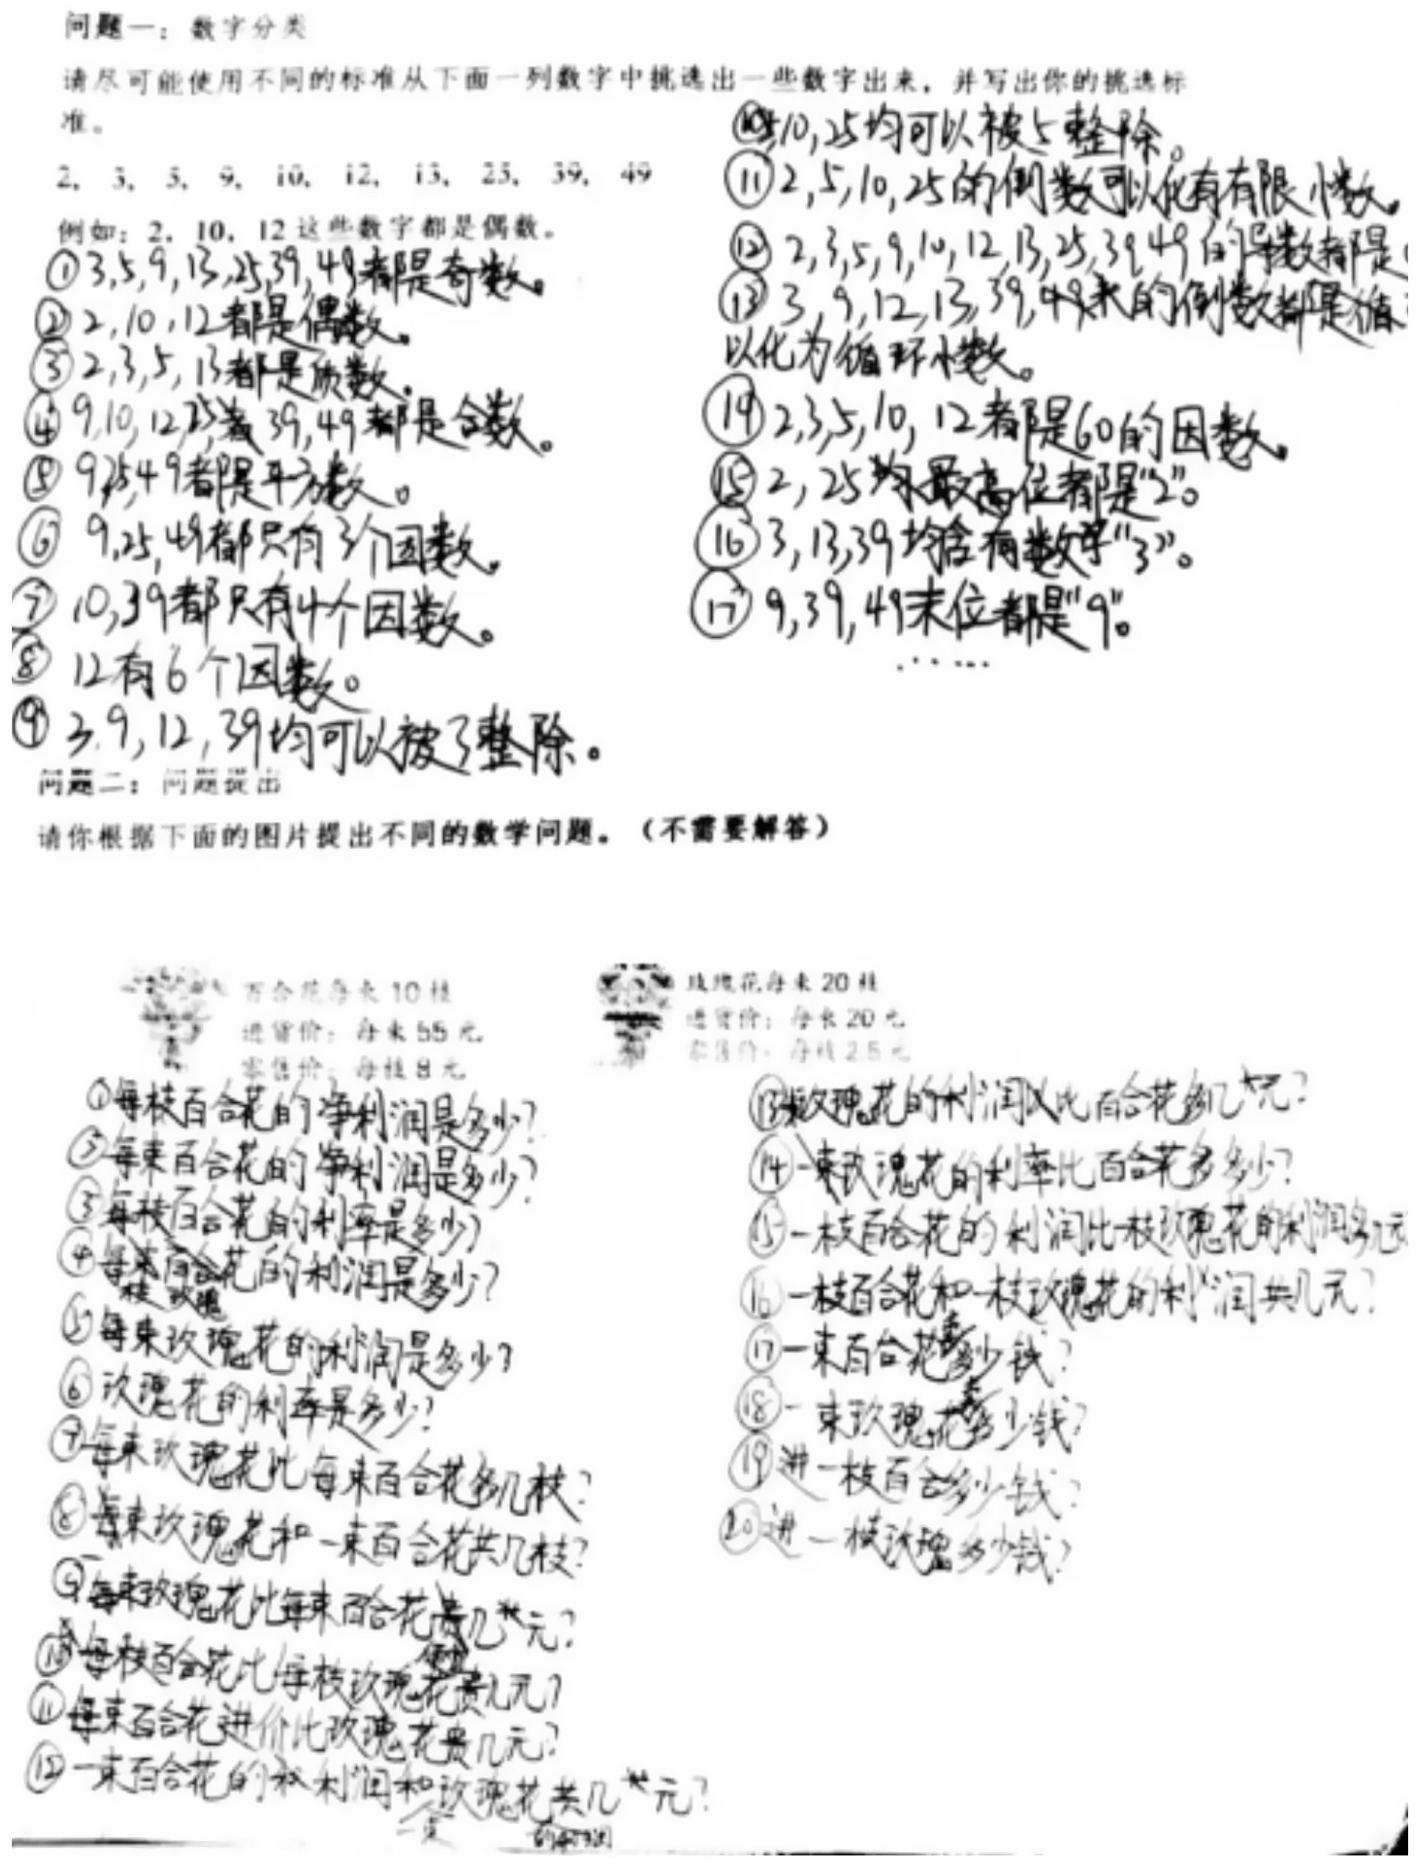 问题一：数字分类
请尽可能使用不同的标准从下面一列数字中挑选出一些数字出来，并写出你的挑选标
准。
2, 3, 5, 9, 10, 12, 13, 25, 39, 49
例如：2, 10, 12这些数字都是偶数。
①3,5,9,13,25,39,49都是奇数。
②2,10,12都是偶数。
③2,3,5,13都是质数。
④9,10,12,25,39,49都是合数。
⑤9,25,49都是平方数。
⑥9,25,49都只有3个因数。
⑦10,39都只有4个因数。
⑧12有6个因数。
⑨3,9,12,39均可以被3整除。
⑩5,10,25均可以被5整除。
⑪2,5,10,25的倒数可以化有有限小数。
⑫2,3,5,9,10,12,13,25,39,49的导数都是
⑬3,9,12,13,39,49的倒数都是循
以化为循环小数。
⑭2,3,5,10,12都是60的因数。
⑮2,25最高位都是“2”。
⑯3,13,39均含有数字“3”。
⑰9,39,49末位都是“9”。
……
问题二：问题提出
请你根据下面的图片提出不同的数学问题。（不需要解答）
百合花每束10枝
进货价：每束55元
零售价：每枝8元
玫瑰花每束20枝
进货价：每束20元
零售价：每枝2.5元
①每枝百合花的净利润是多少？
②每束百合花的净利润是多少？
③每枝百合花的利率是多少？
④每枝玫瑰花的利润是多少？
⑤每束玫瑰花的利润是多少？
⑥玫瑰花的利率是多少？
⑦每束玫瑰花比每束百合花多几枝？
⑧每束玫瑰花和一束百合花共几枝？
⑨每束玫瑰花比每束百合花便宜几元？
⑩每枝百合花比每枝玫瑰花贵几元？
⑪每束百合花进价比玫瑰花贵几元？
⑫一束百合花的利润和一束玫瑰花的利润共几元？
⑬玫瑰花的利润比百合花多几元？
⑭一束玫瑰花的利率比百合花多多少？
⑮一枝百合花的利润比一枝玫瑰花的利润多几元
⑯一枝百合花和一枝玫瑰花的利润共几元？
⑰一束百合花卖多少钱？
⑱一束玫瑰花卖多少钱？
⑲进一枝百合多少钱？
⑳进一枝玫瑰多少钱？